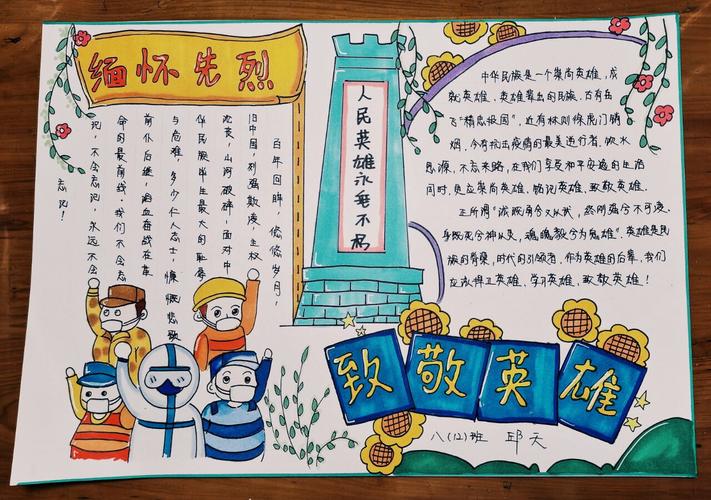 缅怀先烈
百年回眸，悠悠岁月，
旧中国，列强欺凌，主权
沦丧，山河破碎，面对中
华民族毕生最大的耻辱
与危难，多少仁人志士，慷慨悲歌
前仆后继，浴血奋战在革
命的最前线。我们不会忘
记，不会忘记，永远不会
忘记！
人民英雄永垂不朽
中华民族是一个崇尚英雄、成
就英雄、英雄辈出的民族，古有岳
飞"精忠报国"，近有林则徐虎门销
烟，今有抗击疫情的最美逆行者。饮水
思源，不忘来路，在我们享受和平安逸的生活
同时，更应崇尚英雄，铭记英雄，致敬英雄。
正所谓"诚既勇兮又以武，终刚强兮不可凌。
身既死兮神以灵，魂魄毅兮为鬼雄"。英雄是民
族的脊梁，时代的引领者，作为英雄的后辈，我们
应英雄，学习英雄，致敬英雄！
致敬英雄
八(12)班 邱天